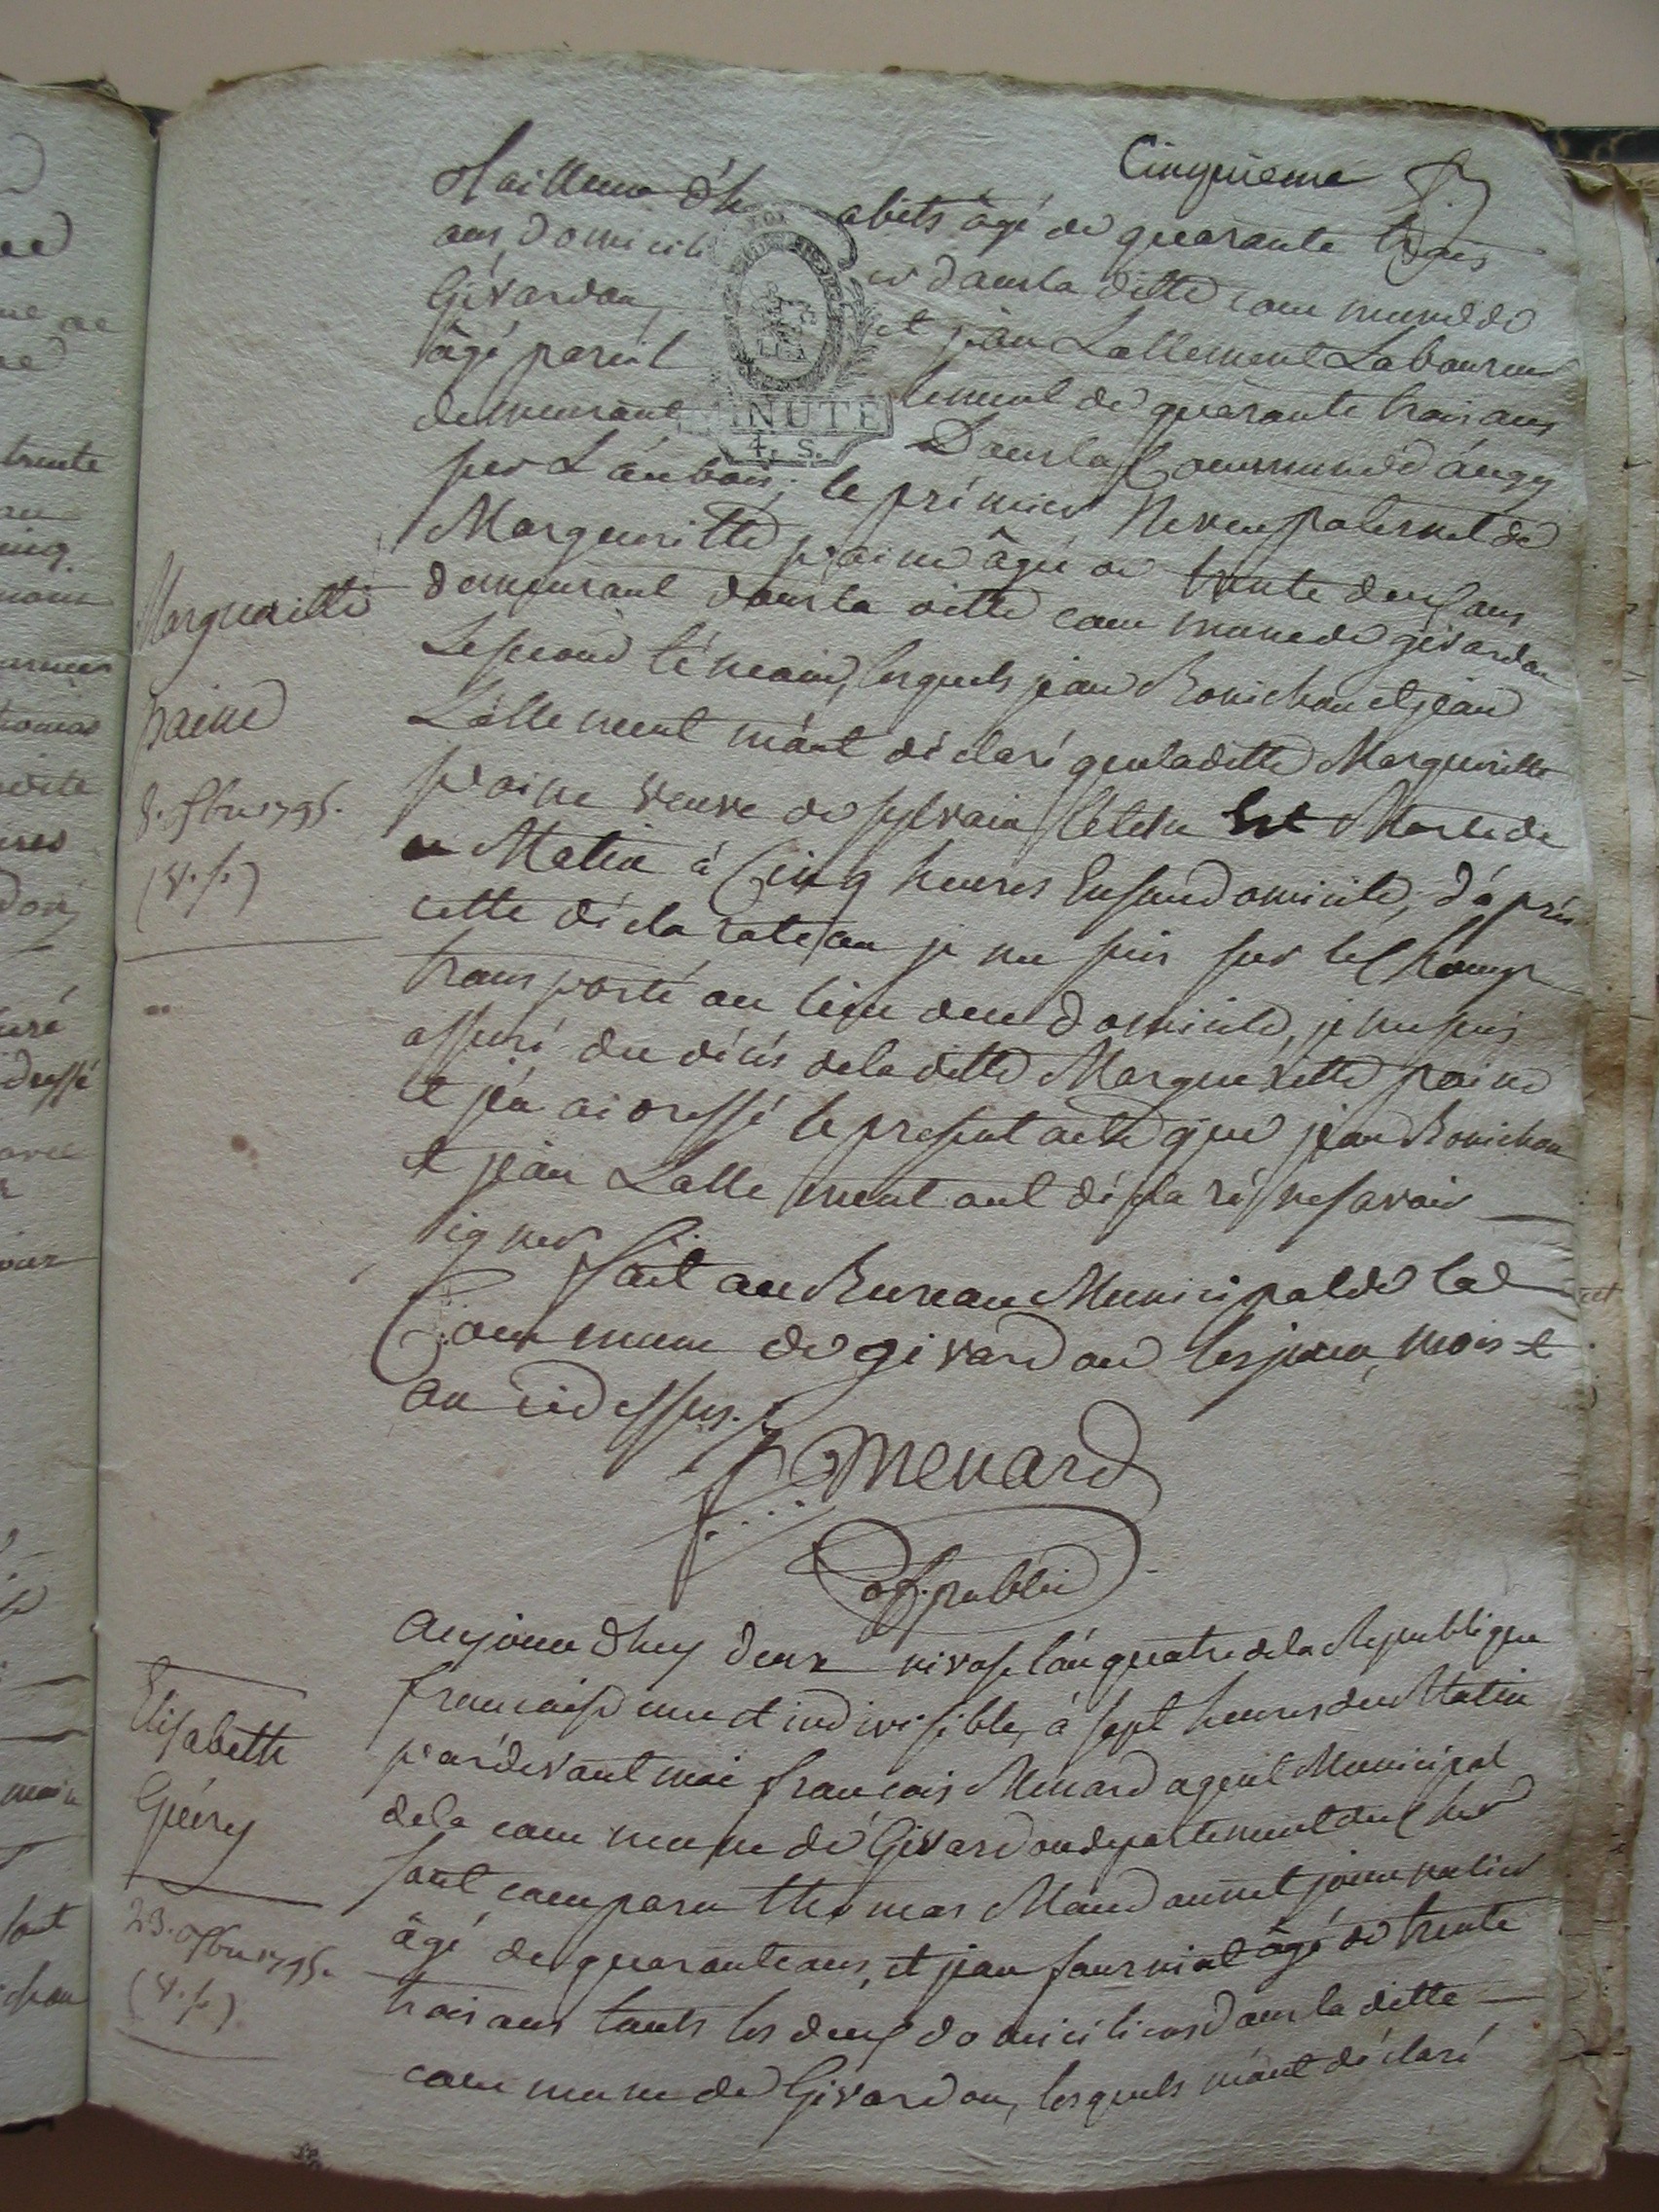 Cinquieme
tailleur d'habits âgé de quarante trois
ans, domicilier dans la ditte commune de
Givardon, et jean Lallement Laboureur
âgé pareillement de quarante trois ans
demeurant Dans la Commune d'augy
sur L'aubois; le prémier Neveu paternel de
Margueritte paine âgée de trente deux ans
demeurant dans la ditte commune de givardon
Le second témoins, lesquels jean Bonichon et jean
Lallement m'ont déclaré que la ditte Margueritte
paine veuve de sylvain Est Morte de
ce Matin à Cinq heures En son domicile, d'áprés
cette déclaration je me suis sur le Champs
transporté au lieu de ce domicile, je me suis
assuré du décés de la ditte Margueritte paine
et j'en ai dressé le present acte que jean Bonichon
et jean Lallement ont déclaré ne savoir
signer
fait au Bureau Municipal de la
Commune de givardon les jour, mois et
an cidessus.
Menard
of. public
Margueritte
paine
8. 1795.
(v. s.)
aujourdhuy deux nivose l'an quatre de la Republique
francaise une et indivisible, à sept heures du Matin
pardevant moi francois Menard agent Municipal
de la commune de Givardon departement du Cher
sont comparu thomas Mandonnet journalier
âgé de quarante ans, et jean fourniat âgé de trente
trois ans touts les deux domiciliers dans la ditte
commune de Givardon, lesquels m'ont déclaré
Elisabeth
Guéry
23. 1795.
(v. s.)
MINUTE
4. S.